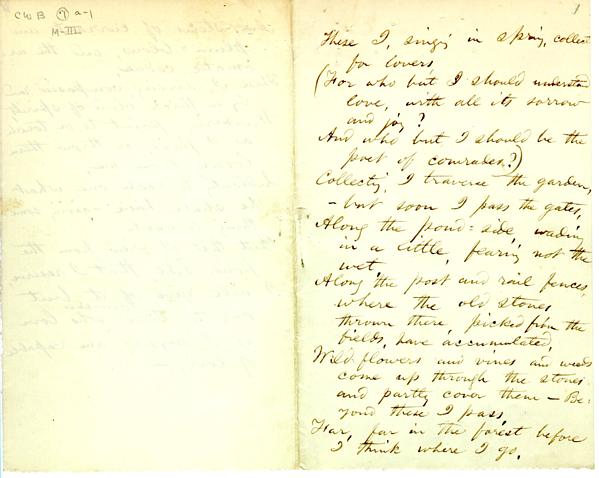 CWB ⑦ a-1
M-III
1
These I, singing in spring, collect
for lovers
(For who but I should understand
love, with all its sorrow
and joy?
And who but I should be the
poet of comrades?)
Collecting, I traverse the garden,
– but soon I pass the gates,
Along the pond-side, wading
in a little, fearing not the
wet,
Along the post and rail fences,
where the old stones
thrown there, picked from the
fields, have accumulated,
Wild-flowers and vines and weeds
come up through the stones
and partly cover them – Be-
yond these I pass,
Far, far in the forest before
I think where I go,